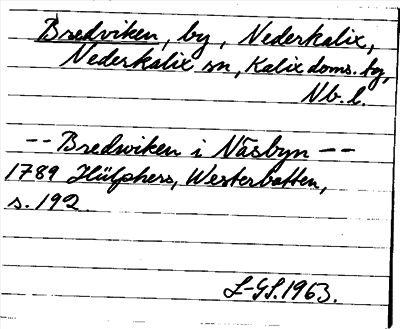 Bredviken, by, Nederkalix,
Nederkalix sn, Kalix doms. tg,
Nb. l.
-- Bredwiken i Näsbyn --
1789 Hülphers, Westerbotten,
s. 192
L-GS. 1963.